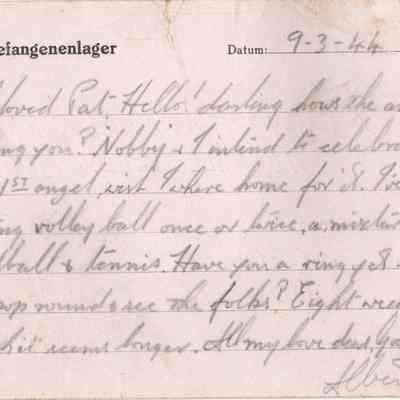 efangenenlager Datum: 9-3-44
loved Pat, Hello! darling hows the a
ing you? Nobby & I intend to celebra
1ST angel, wish I where home for it. I've
ing volley ball once or twice, a mixtur
tball & tennis. Have you a ring yet
pop round & see the folks? Eight wee
seems longer. All my love dear,
Alber